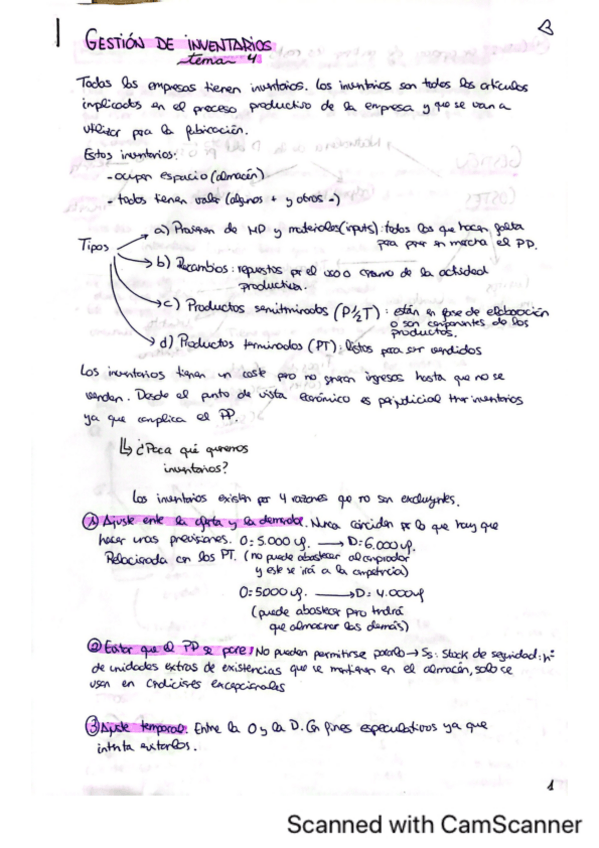 GESTIÓN DE INVENTARIOS
tema 4
Todas las empresas tienen inventarios. Los inventarios son todos los artículos
implicados en el proceso productivo de la empresa y que se van a
utilizar para la fabricación.
Estos inventarios:
- ocupan espacio (almacén)
- todos tienen valor (algunos + y otros -)
a) Provienen de MP y materiales (inputs): todos los que hacen falta
para poner en marcha el PD.
Tipos
b) Recambios: repuestos por el uso o de la actividad
productiva.
c) Productos semiterminados (P½T): están en fase de elaboración
o son componentes de los
productos.
d) Productos terminados (PT): listos para ser vendidos
Los inventarios tienen un coste pero no generan ingresos hasta que no se
venden. Desde el punto de vista económico es perjudicial tener inventarios
ya que complica el PP.
↳ ¿Para qué queremos
inventarios?
Los inventarios existen por 4 razones que no son excluyentes.
① Ajuste entre la oferta y la demanda. Nunca coinciden por lo que hay que
hacer unas previsiones. O: 5.000 uf. → D: 6.000 uf.
Relacionada con los PT. (no puede abastecer al comprador
y este se irá a la competencia)
O: 5000 uf. → D: 4.000 uf
(puede abastecer pero tendrá
que almacenar los demás)
② Evitar que el PD se pare: No pueden permitirse pararlo → Ss: Stock de seguridad: nº
de unidades extras de existencias que se mantienen en el almacén, solo se
usan en condiciones excepcionales
③ Ajuste temporal. Entre la O y la D. Con fines especulativos ya que
intenta
1
Scanned with CamScanner